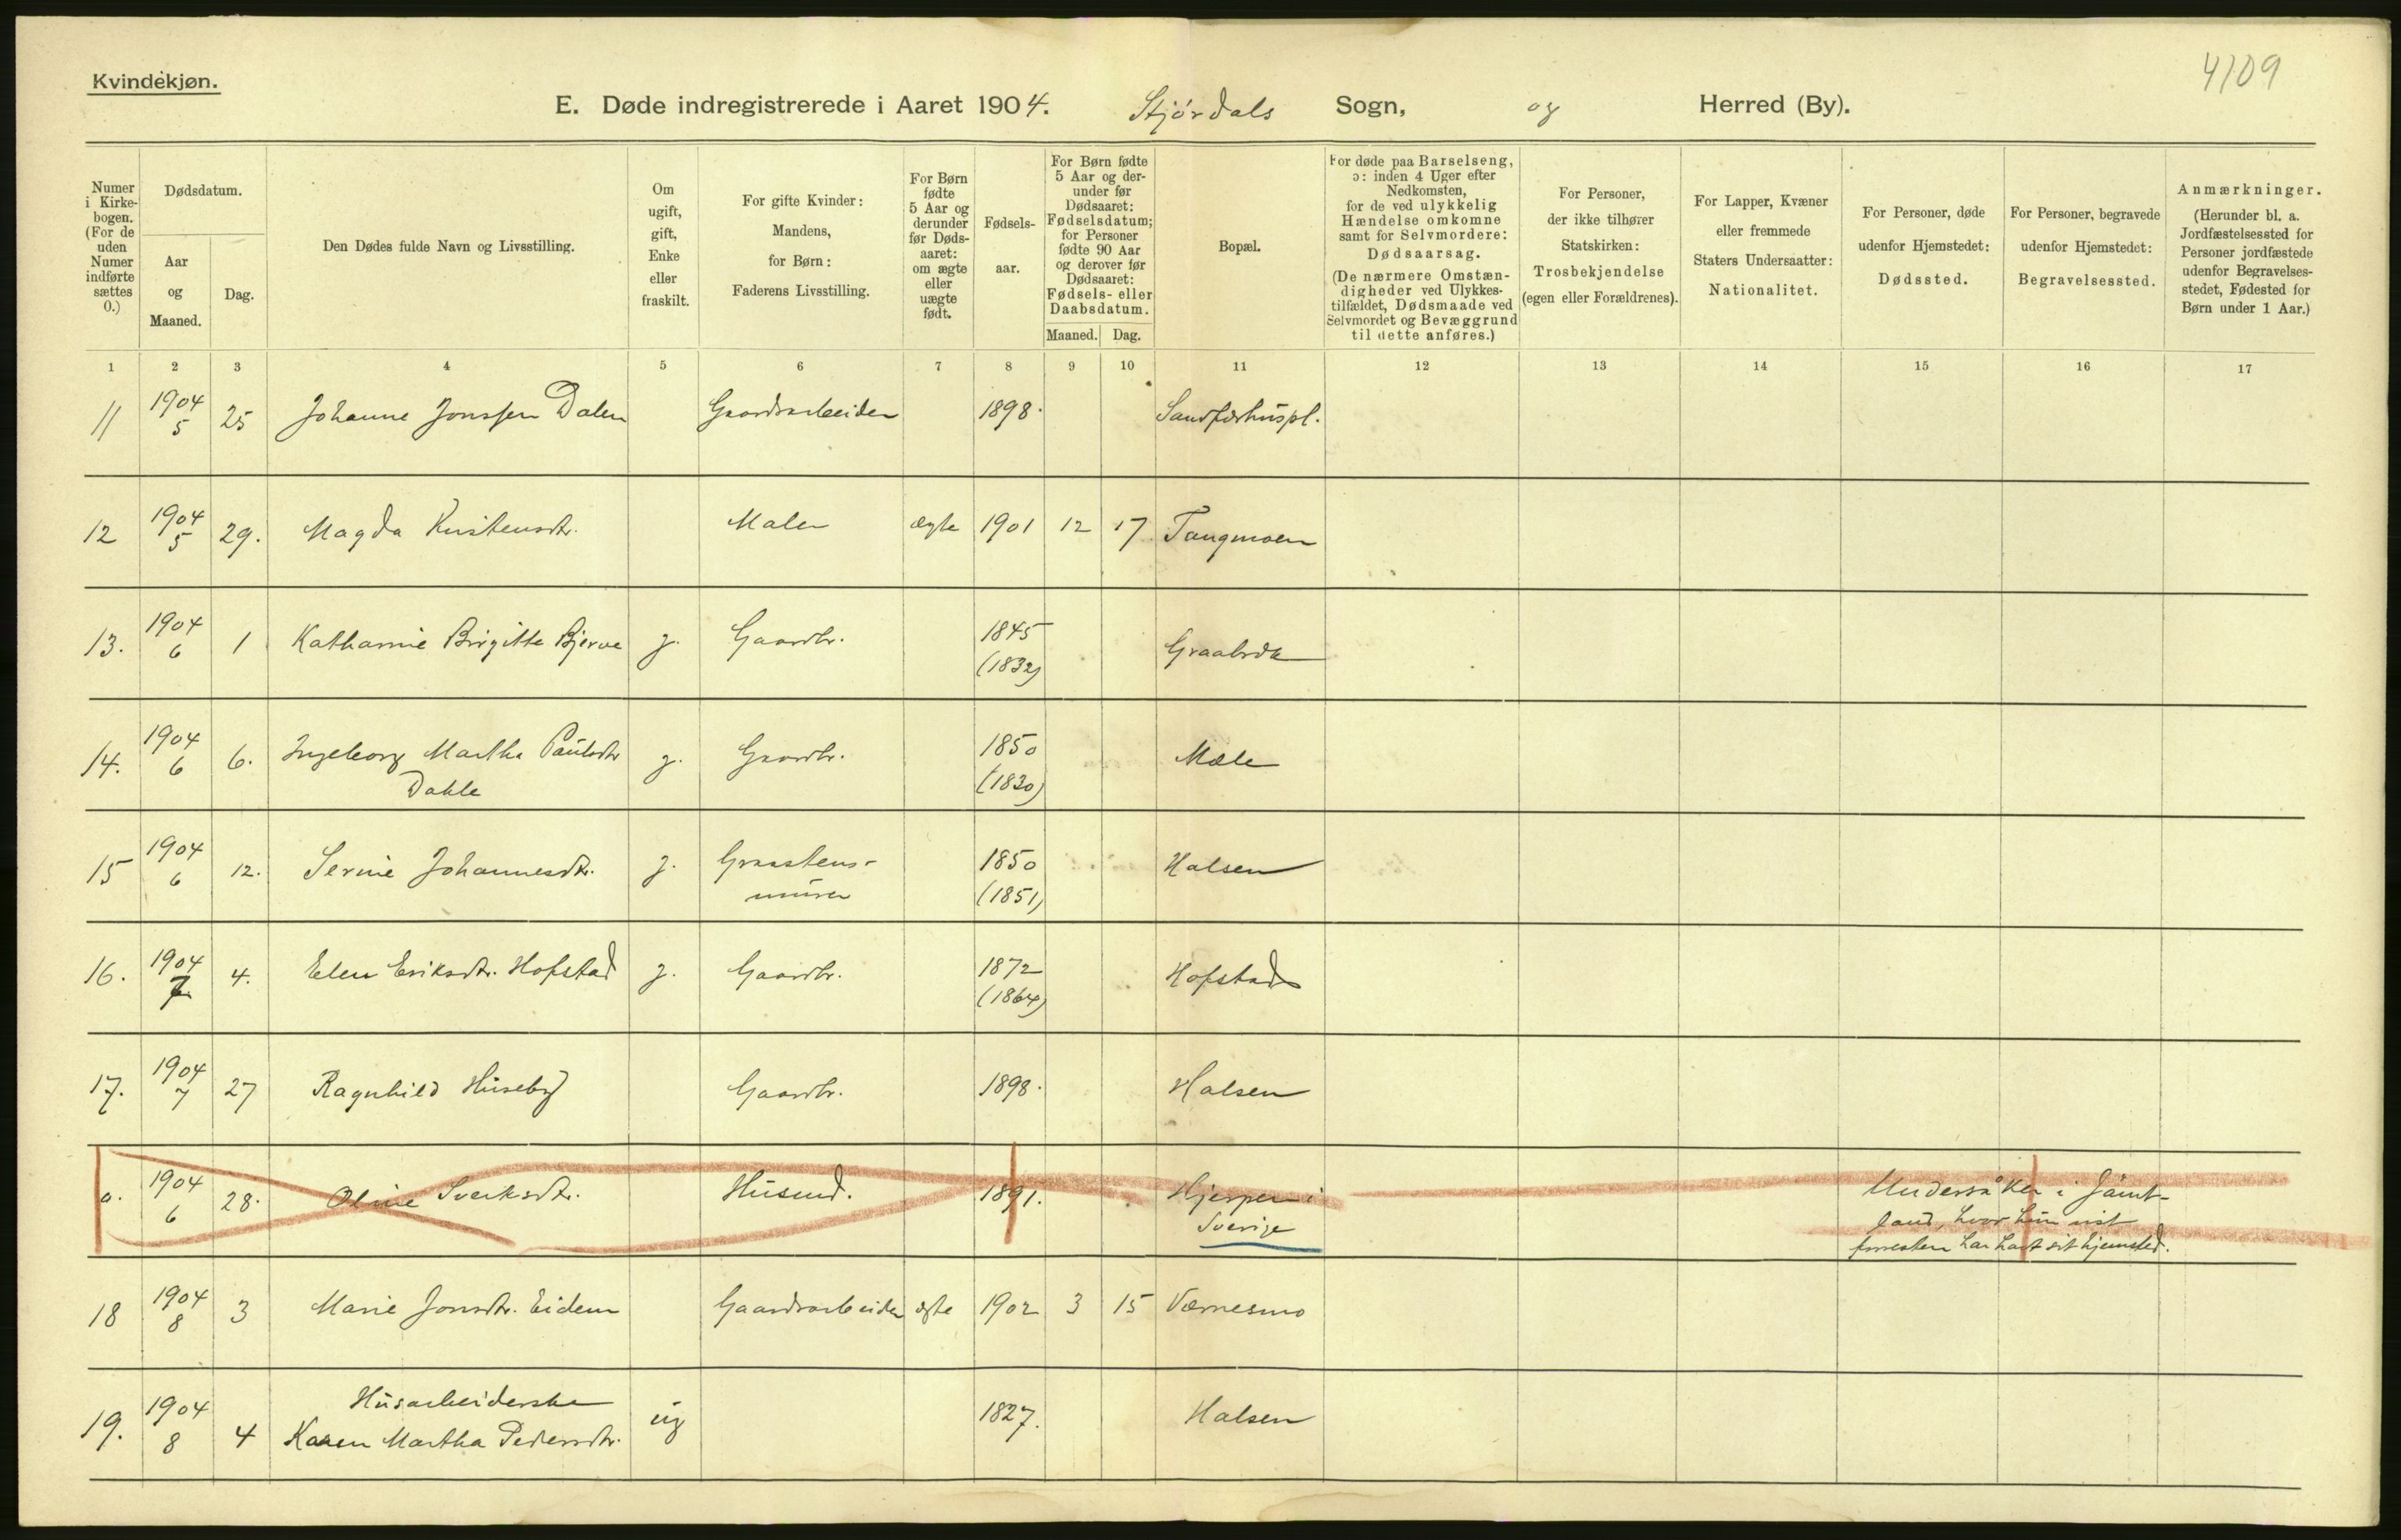 Kvindekjøn.
4109
E. Døde indregistrerede i Aaret 1904. Stjørdals Sogn, og Herred (By).
Numer i Kirkebogen. (For de uden Numer indførte sættes 0.)
Dødsdatum.
Aar og Maaned.
Dag.
Den Dødes fulde Navn og Livsstilling.
Om ugift, gift, Enke eller fraskilt.
For gifte Kvinder: Mandens, for Børn: Faderens Livsstilling.
For Børn fødte 5 Aar og derunder før Dødsaaret: om ægte eller uægte født.
Fødselsaar.
For Børn fødte 5 Aar og derunder før Dødsaaret: Fødselsdatum; for Personer fødte 90 Aar og derover før Dødsaaret: Fødsels- eller Daabsdatum.
Maaned. Dag.
Bopæl.
For døde paa Barselseng, ɔ: inden 4 Uger efter Nedkomsten, for de ved ulykkelig Hændelse omkomne samt for Selvmordere: Dødsaarsag. (De nærmere Omstændigheder ved Ulykkestilfældet, Dødsmaade ved Selvmordet og Bevæggrund til dette anføres.)
For Personer, der ikke tilhører Statskirken: Trosbekjendelse (egen eller Forældrenes).
For Lapper, Kvæner eller fremmede Staters Undersaatter: Nationalitet.
For Personer, døde udenfor Hjemstedet: Dødssted.
For Personer, begravede udenfor Hjemstedet: Begravelsessted.
Anmærkninger. (Herunder bl. a. Jordfæstelsessted for Personer jordfæstede udenfor Begravelsesstedet, Fødested for Børn under 1 Aar.)
1 2 3 4 5 6 7 8 9 10 11 12 13 14 15 16 17
11 1904 5 25 Johanne Jonssen Dalen Gaardsarbeider 1898.
12 1904 5 29. Magda Kristensdtr. Maler ægte 1901 12 17 Tangmoen
13. 1904 6 1 Katharine Birgitte Bjerve g. Gaardbr. 1845 (1832)
14. 1904 6 6. Ingeborg Martha Paulsdtr Dahle g. Gaardbr. 1850 (1830) Mæle
15 1904 6 12. Serine Johannesdtr. g. Graastensmurer 1850 (1851) Halsen
16. 1904 7. 4. Elen Eriksdtr. Hofstad g. Gaardbr. 1872 (1864) Hofstad
17. 1904 7 27 Ragnhild Huseby Gaardbr. 1898. Halsen
0. 1904 6 28. Oline Husmd. 1891. Hjerpen i Sverige Undersåker i Jämtland, hvor hun har havt sit hjemsted.
18 1904 8 3 Marie Jonsdtr. Eidem Gaardsarbeider ægte 1902 3 15 Værnesmo
19. 1904 8 4 Husarbeiderske Karen Martha Pedersdtr. ug 1827. Halsen